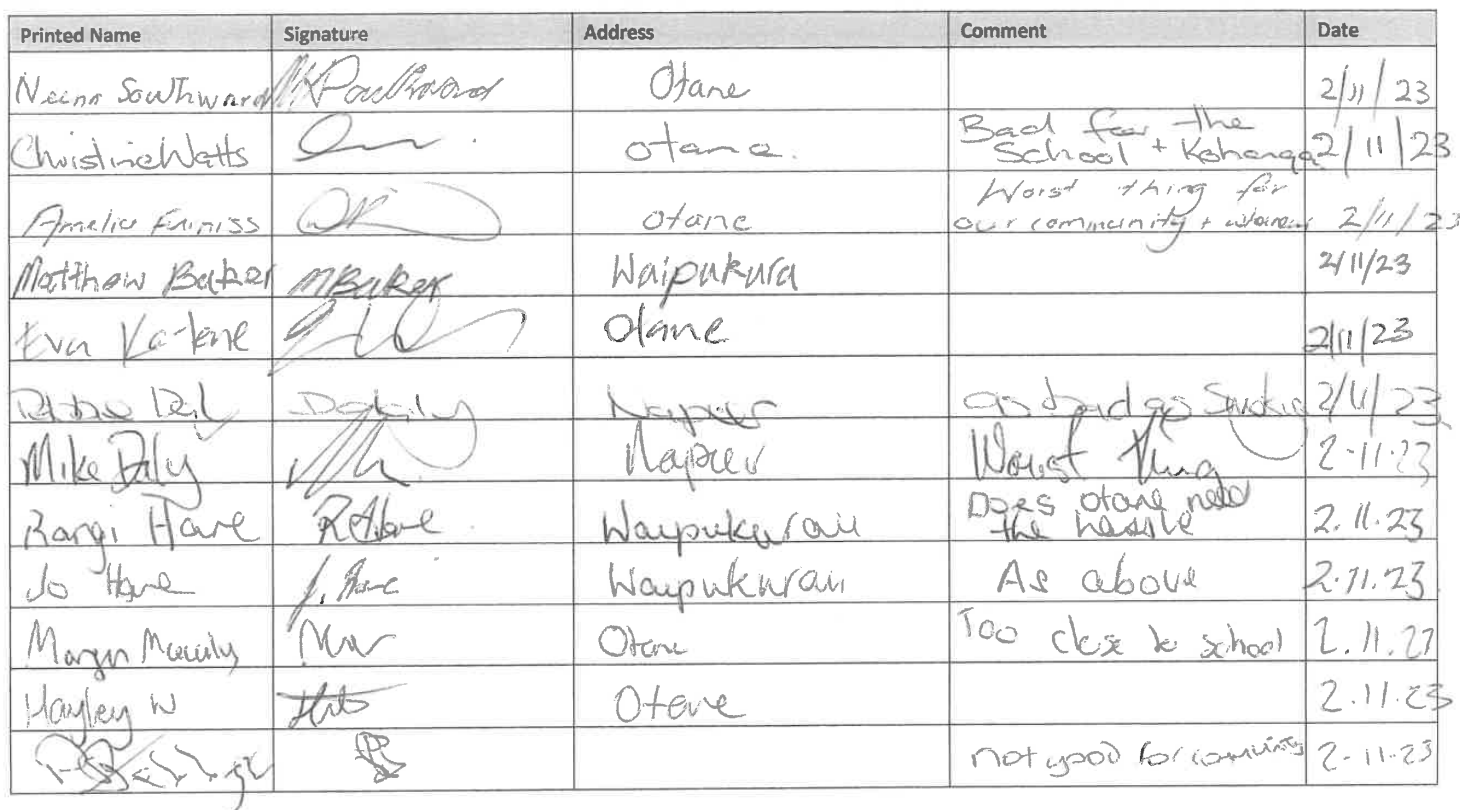 Printed Name Signature Address Comment Date
Southward Otane 2/11/23
Christine Watts otane. Bad for the
School + Kohanga 2/11/23
Amelia Furniss otane Worst thing for
our community + 2/11/23
Matthew Baker MBaker Waipukura 2/11/23
Eva Katene Otane 2/11/23
Napier as bad as 2/11/23
Mike Daly Napier Worst thing 2.11.23
Rangi Hare RHare Waipukurau Does otane need
the hassle 2.11.23
Jo Hare J. Hare Waipukurau As above 2.11.23
Otane Too close to school 2.11.23
Hayley W Otane 2.11.23
not good for community 2-11-23